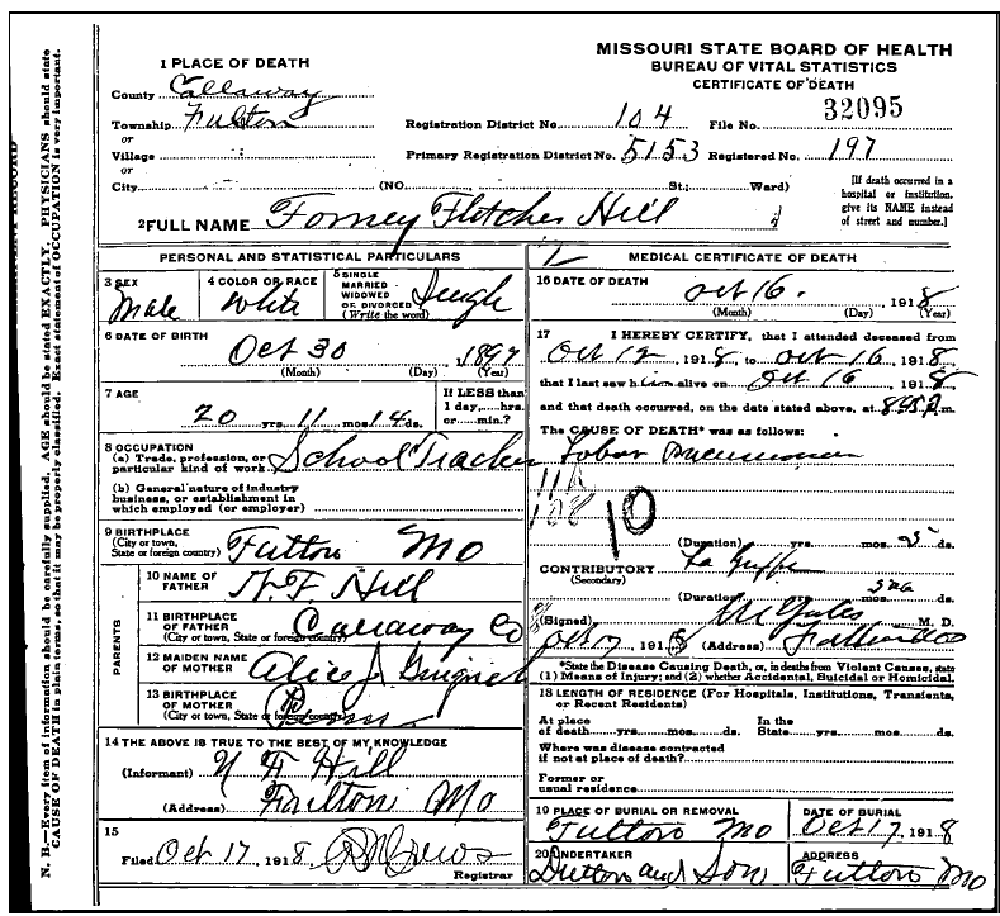 MISSOURI STATE BOARD OF HEALTH
BUREAU OF VITAL STATISTICS
CERTIFICATE OF DEATH
1 PLACE OF DEATH
County Callaway
Township Fulton
or
Village
or
City (NO. St.; Ward)
Registration District No. 104 File No. 32095
Primary Registration District No. 5153 Registered No. 197
[If death occurred in a
hospital or institution,
give its NAME instead
of street and number.]
2 FULL NAME Forney Fletcher Hill
PERSONAL AND STATISTICAL PARTICULARS
3 SEX
Male
4 COLOR OR RACE
White
5 SINGLE
MARRIED
WIDOWED
OR DIVORCED
(Write the word)
Single
6 DATE OF BIRTH
Oct 30, 1897
(Month) (Day) (Year)
7 AGE
20 yrs. 11 mos. 14 ds.
If LESS than
1 day,.....hrs.
or......min.?
8 OCCUPATION
(a) Trade, profession, or
particular kind of work School Teacher
(b) General nature of industry
business, or establishment in
which employed (or employer)
9 BIRTHPLACE
(City or town,
State or foreign country) Fulton Mo
PARENTS
10 NAME OF
FATHER N. F. Hill
11 BIRTHPLACE
OF FATHER
(City or town, State or foreign country) Callaway Co
12 MAIDEN NAME
OF MOTHER Alice J
13 BIRTHPLACE
OF MOTHER
(City or town, State or foreign country)
14 THE ABOVE IS TRUE TO THE BEST OF MY KNOWLEDGE
(Informant) N F Hill
(Address) Fulton Mo
15
Filed Oct 17, 1918
Registrar
MEDICAL CERTIFICATE OF DEATH
16 DATE OF DEATH
Oct 16. 1918
(Month) (Day) (Year)
17 I HEREBY CERTIFY, that I attended deceased from
Oct 12, 1918, to Oct 16, 1918
that I last saw him alive on Oct 16, 1918
and that death occurred, on the date stated above, at m.
The CAUSE OF DEATH* was as follows:
Lobar Pneumonia
10
(Duration) yrs. mos. ds.
CONTRIBUTORY La Grippe
(Secondary)
(Duration) mos. ds.
(Signed) M Yates M. D.
Oct 17, 1918 (Address) Fulton Mo
*State the Disease Causing Death, or, in deaths from Violent Causes, state
(1) Means of Injury; and (2) whether Accidental, Suicidal or Homicidal.
18 LENGTH OF RESIDENCE (For Hospitals, Institutions, Transients,
or Recent Residents)
At place
of death......yrs......mos......ds.
In the
State......yrs......mos......ds.
Where was disease contracted
if not at place of death?
Former or
usual residence
19 PLACE OF BURIAL OR REMOVAL
Fulton Mo
DATE OF BURIAL
Oct 17, 1918
20 UNDERTAKER
Dutton and Son
ADDRESS
Fulton Mo
N. B.—Every item of information should be carefully supplied. AGE should be stated EXACTLY. PHYSICIANS should state
CAUSE OF DEATH in plain terms, so that it may be properly classified. Exact statement of OCCUPATION is very important.